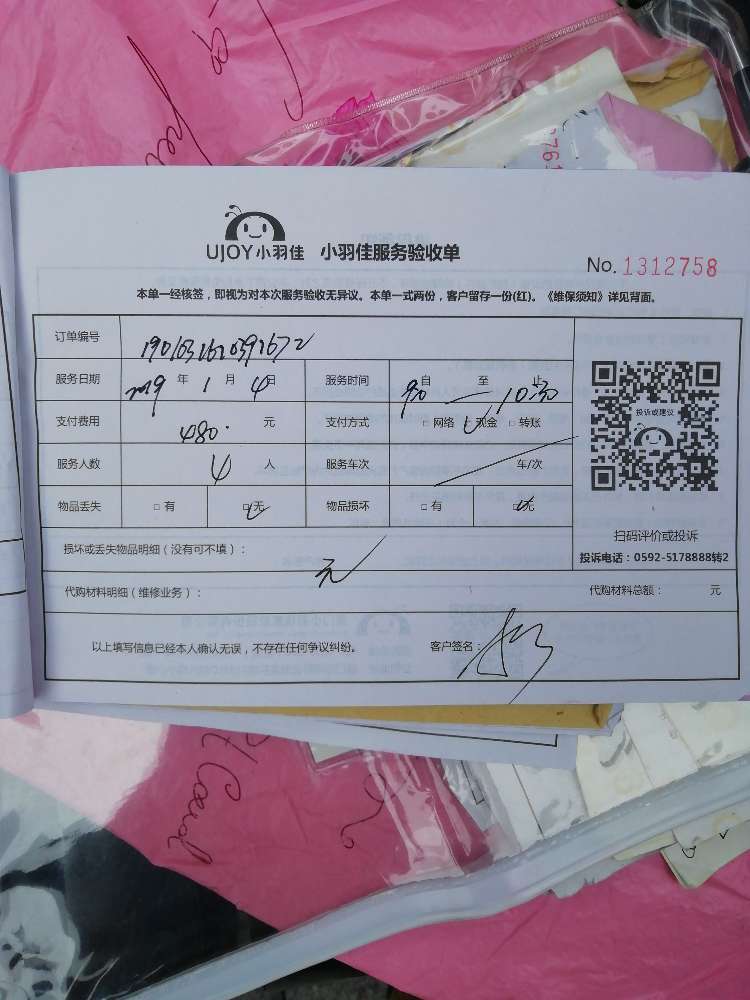 UJOY小羽佳 小羽佳服务验收单
No. 1312758
本单一经核签，即视为对本次服务验收无异议。本单一式两份，客户留存一份(红)。《维保须知》详见背面。
订单编号
服务日期 2019 年 1 月 4日 服务时间 自 至 10:30 止
支付费用 480. 元 支付方式 □ 网络 现金 □ 转账
服务人数 4 人 服务车次 车/次
物品丢失 □ 有 □ 无 物品损坏 □ 有 □ 无
投诉或建议
扫码评价或投诉
投诉电话：0592-5178888转2
损坏或丢失物品明细（没有可不填）：
无
代购材料明细（维修业务）： 代购材料总额： 元
以上填写信息已经本人确认无误，不存在任何争议纠纷。 客户签名：